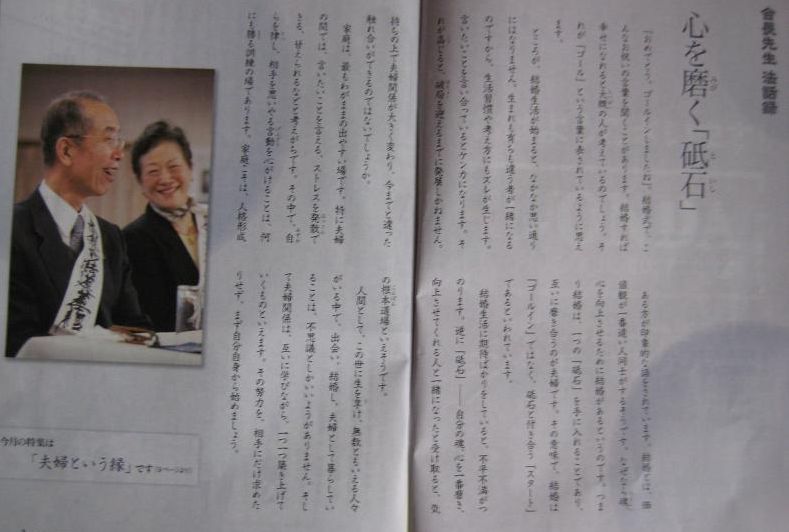 会長先生 法話録
心を磨く「砥石」
「おめでとう。ゴールインしましたね」。結婚式で、こ
んなお祝いの言葉を聞くことがあります。結婚すれば
幸せになれると大概の人が考えているのでしょう。そ
れが「ゴール」という言葉に表されているように思え
ます。
ところが、結婚生活が始まると、なかなか思い通り
にはなりません。生まれも育ちも違う者が一緒になる
のですから、生活習慣や考え方にもズレが生じます。
言いたいことを言い合っているとケンカになります。そ
れが高じると、破局を迎えるまでに発展しかねません。
ある方が印象的な話をされています。結婚とは、価
値観が一番違う人同士がするそうです。なぜなら魂、
心を向上させるために結婚があるというのです。つま
り結婚は、一つの「砥石」を手に入れることであり、
互いに磨き合うのが夫婦です。その意味で、結婚は
「ゴールイン」ではなく、砥石と付き合う「スタート」
であるといわれています。
結婚生活に期待ばかりをしていると、不平不満がつ
のります。逆に「砥石」――自分の魂、心を一番磨き、
向上させてくれる人と一緒になったと受け取ると、気
持ちの上で夫婦関係が大きく変わり、今までと違った
触れ合いができるのではないでしょうか。
家庭は、最もわがままの出やすい場です。特に夫婦
の間では、言いたいことを言える、ストレスを発散で
きる、甘えられるなどと考えがちです。その中で、自
らを律し、相手を思いやる言動を心がけることは、何
にも勝る訓練の場であります。家庭こそは、人格形成
の根本道場といえそうです。
人間として、この世に生を享け、無数ともいえる人々
がいる中で、出会い、結婚し、夫婦として暮らしてい
ることは、不思議としかいいようがありません。そし
て夫婦関係は、互いに学びながら、一つ一つ築き上げて
いくものといえます。その努力を、相手にだけ求めた
りせず、まず自分自身から始めましょう。
今月の特集は
「夫婦という縁」です